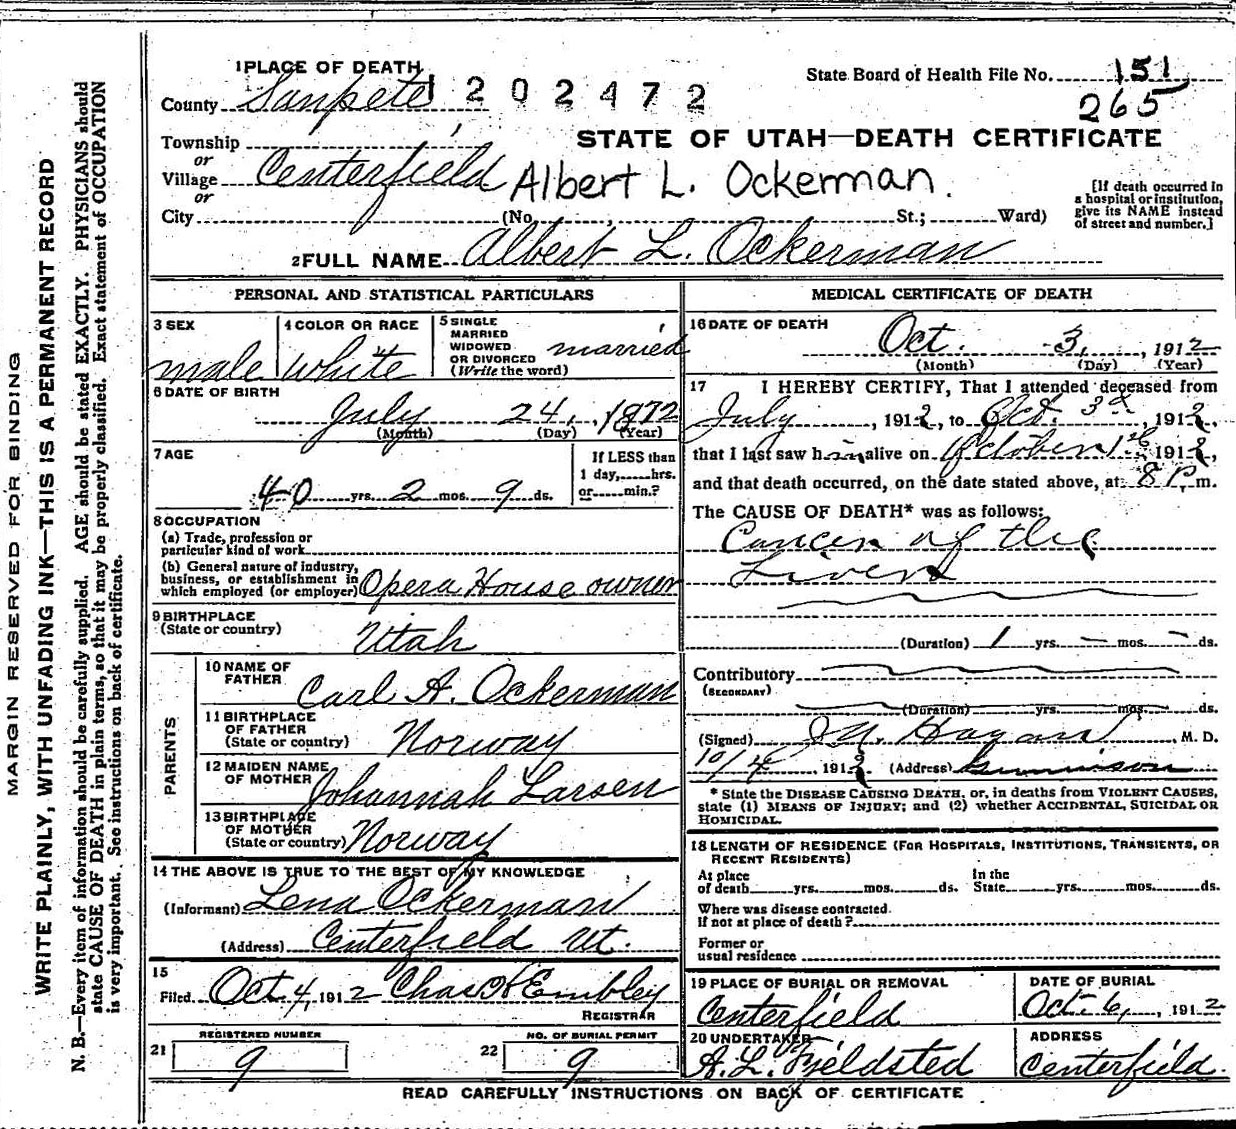 1 PLACE OF DEATH
State Board of Health File No. 151
County Sanpete 1202472
265
STATE OF UTAH—DEATH CERTIFICATE
Township
or
Village Centerfield Albert L. Ockerman.
or
City (No. , St.; Ward)
[If death occurred in
a hospital or institution,
give its NAME instead
of street and number.]
2 FULL NAME Albert L. Ockerman
PERSONAL AND STATISTICAL PARTICULARS
3 SEX
male
4 COLOR OR RACE
white
5 SINGLE
MARRIED
WIDOWED
OR DIVORCED
(Write the word)
married
6 DATE OF BIRTH
July 24, 1872
(Month) (Day) (Year)
7 AGE
40 yrs. 2 mos. 9 ds.
If LESS than
1 day, hrs.
or min.?
8 OCCUPATION
(a) Trade, profession or
particular kind of work
(b) General nature of industry,
business, or establishment in
which employed (or employer) Opera House owner
9 BIRTHPLACE
(State or country) Utah
PARENTS
10 NAME OF
FATHER Carl A. Ockerman
11 BIRTHPLACE
OF FATHER
(State or country) Norway
12 MAIDEN NAME
OF MOTHER Johannah Larsen
13 BIRTHPLACE
OF MOTHER
(State or country) Norway
14 THE ABOVE IS TRUE TO THE BEST OF MY KNOWLEDGE
(Informant) Lena Ockerman
(Address) Centerfield Ut.
15
Filed Oct 4, 1912 Chas H Embley
REGISTRAR
21 REGISTERED NUMBER
9
22 NO. OF BURIAL PERMIT
9
MEDICAL CERTIFICATE OF DEATH
16 DATE OF DEATH
Oct. 3, 1912
(Month) (Day) (Year)
17 I HEREBY CERTIFY, That I attended deceased from
July , 1912, to Oct. 3d , 1912,
that I last saw him alive on October 1st 1912,
and that death occurred, on the date stated above, at 8 P. m.
The CAUSE OF DEATH* was as follows:
Cancer of the
Liver
(Duration) 1 yrs. – mos. – ds.
Contributory
(SECONDARY)
(Duration) yrs. mos. ds.
(Signed) Hagan M. D.
10/4 1912 (Address) Gunnison
* State the DISEASE CAUSING DEATH, or, in deaths from VIOLENT CAUSES,
state (1) MEANS OF INJURY; and (2) whether ACCIDENTAL, SUICIDAL OR
HOMICIDAL.
18 LENGTH OF RESIDENCE (FOR HOSPITALS, INSTITUTIONS, TRANSIENTS, OR
RECENT RESIDENTS)
At place
of death yrs. mos. ds.
In the
State yrs. mos. ds.
Where was disease contracted.
If not at place of death?
Former or
usual residence
19 PLACE OF BURIAL OR REMOVAL
Centerfield
DATE OF BURIAL
Oct. 6, 1912
20 UNDERTAKER
A. L. Fjeldsted
ADDRESS
Centerfield.
READ CAREFULLY INSTRUCTIONS ON BACK OF CERTIFICATE
MARGIN RESERVED FOR BINDING
WRITE PLAINLY, WITH UNFADING INK—THIS IS A PERMANENT RECORD
N. B.—Every item of information should be carefully supplied. AGE should be stated EXACTLY. PHYSICIANS should
state CAUSE OF DEATH in plain terms, so that it may be properly classified. Exact statement of OCCUPATION
is very important. See instructions on back of certificate.